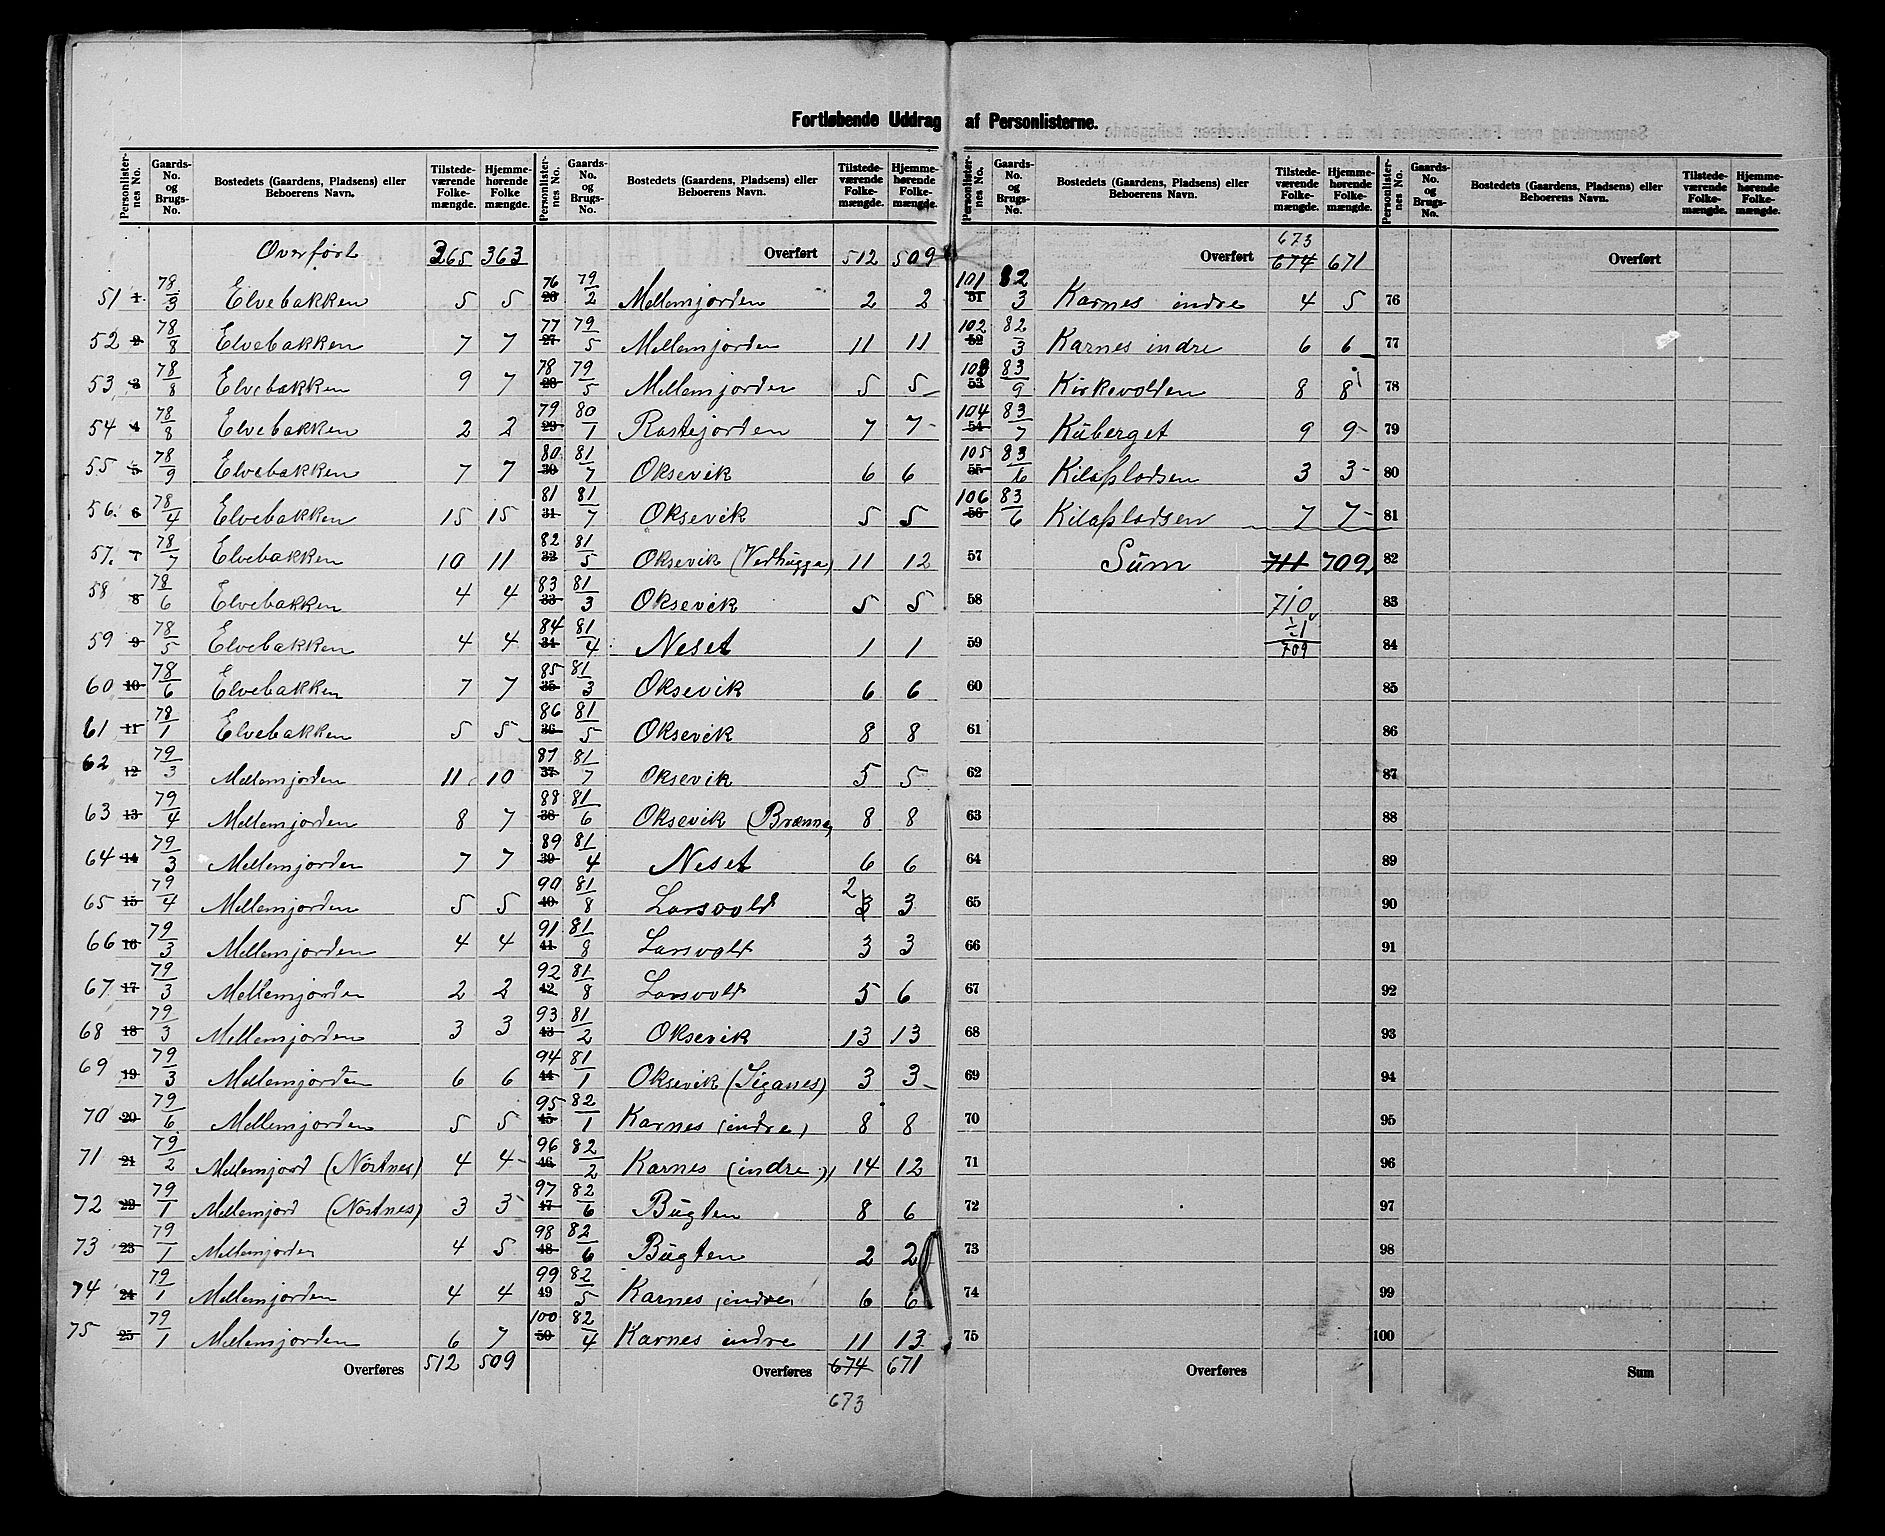 Fortløbende Uddrag af Personlisterne.
Personlister-nes No. | Gaards-No. og Brugs-No. | Bostedets (Gaardens, Pladsens) eller Beboerens Navn. | Tilstede-værende Folke-mængde. | Hjemme-hørende Folke mængde.
Overført 365 363
51 1 78/3 Elvebakken 5 5
52 2 78/8 Elvebakken 7 7
53 3 78/8 Elvebakken 9 7
54 4 78/8 Elvebakken 2 2
55 5 78/9 Elvebakken 7 7
56. 6 78/4 Elvebakken 15 15
57. 7 78/7 Elvebakken 10 11
58 8 78/6 Elvebakken 4 4
59 9 78/5 Elvebakken 4 4
60 10 78/6 Elvebakken 7 7
61 11 78/1 Elvebakken 5 5
62 12 79/3 Mellemjorden 11 10
63 13 79/4 Mellemjorden 8 7
64 14 79/3 Mellemjorden 7 7
65 15 79/4 Mellemjorden 5 5
66 16 79/3 Mellemjorden 4 4
67 17 79/3 Mellemjorden 2 2
68 18 79/3 Mellemjorden 3 3
69 19 79/3 Mellemjorden 6 6
70 20 79/6 Mellemjorden 5 5
71 21 79/2 Mellemjord (Nostnes) 4 4
72 22 79/1 Mellemjord (Nostnes) 3 3
73 23 79/1 Mellemjorden 4 5
74 24 79/1 Mellemjorden 4 4
75 25 79/1 Mellemjorden 6 7
Overføres 512 509
Personlister-nes No. | Gaards-No. og Brugs-No. | Bostedets (Gaardens, Pladsens) eller Beboerens Navn. | Tilstede-værende Folke-mængde. | Hjemme-hørende Folke-mængde.
Overført 512 509
76 26 79/2 Mellemjorden 2 2
77 27 79/5 Mellemjorden 11 11
78 28 79/5 Mellemjorden 5 5
79 29 80/1 Rastejorden 7 7
80 30 81/7 Oksevik 6 6
81 31 81/7 Oksevik 5 5
82 32 81/5 Oksevik (Vedhugga) 11 12
83 33 81/3 Oksevik 5 5
84 34 81/4 Neset 1 1
85 35 81/3 Oksevik 6 6
86 36 81/5 Oksevik 8 8
87 37 81/7 Oksevik 5 5
88 38 81/6 Oksevik (Brænna) 8 8
89 39 81/4 Neset 6 6
90 40 81/8 Larsvold 2 3 3
91 41 81/8 Larsvolt 3 3
92 42 81/8 Larsvold 5 6
93 43 81/2 Oksevik 13 13
94 44 81/1 Oksevik (Siganes) 3 3
95 45 82/1 Karnes (indre) 8 8
96 46 82/2 Karnes (indre) 14 12
97 47 82/6 Bugten 8 6
98 48 82/6 Bugten 2 2
99 49 82/5 Karnes (indre) 6 6
100 50 82/4 Karnes indre 11 13
Overføres 674 671
673
Personlister-nes No. | Gaards-No. og Brugs-No. | Bostedets (Gaardens, Pladsens) eller Beboerens Navn. | Tilstede-værende Folke-mængde. | Hjemme-hørende Folke-mængde.
673
Overført 674 671
101 51 82/3 Karnes indre 4 5
102 52 82/3 Karnes indre 6 6
103 53 83/9 Kirkevolden 8 8
104 54 83/7 Kuberget 9 9
105 55 83/6 Kilapladsen 3 3
106 56 83/6 Kilapladsen 7 7
57 Sum 711 709
58 710
÷1
59 709
60
61
62
63
64
65
66
67
68
69
70
71
72
73
74
75
Overføres
Personlister-nes No. | Gaards-No. og Brugs-No. | Bostedets (Gaardens, Pladsens) eller Beboerens Navn. | Tilstede-værende Folke-mængde. | Hjemme-hørende Folke-mængde.
Overført
76
77
78
79
80
81
82
83
84
85
86
87
88
89
90
91
92
93
94
95
96
97
98
99
100
Sum